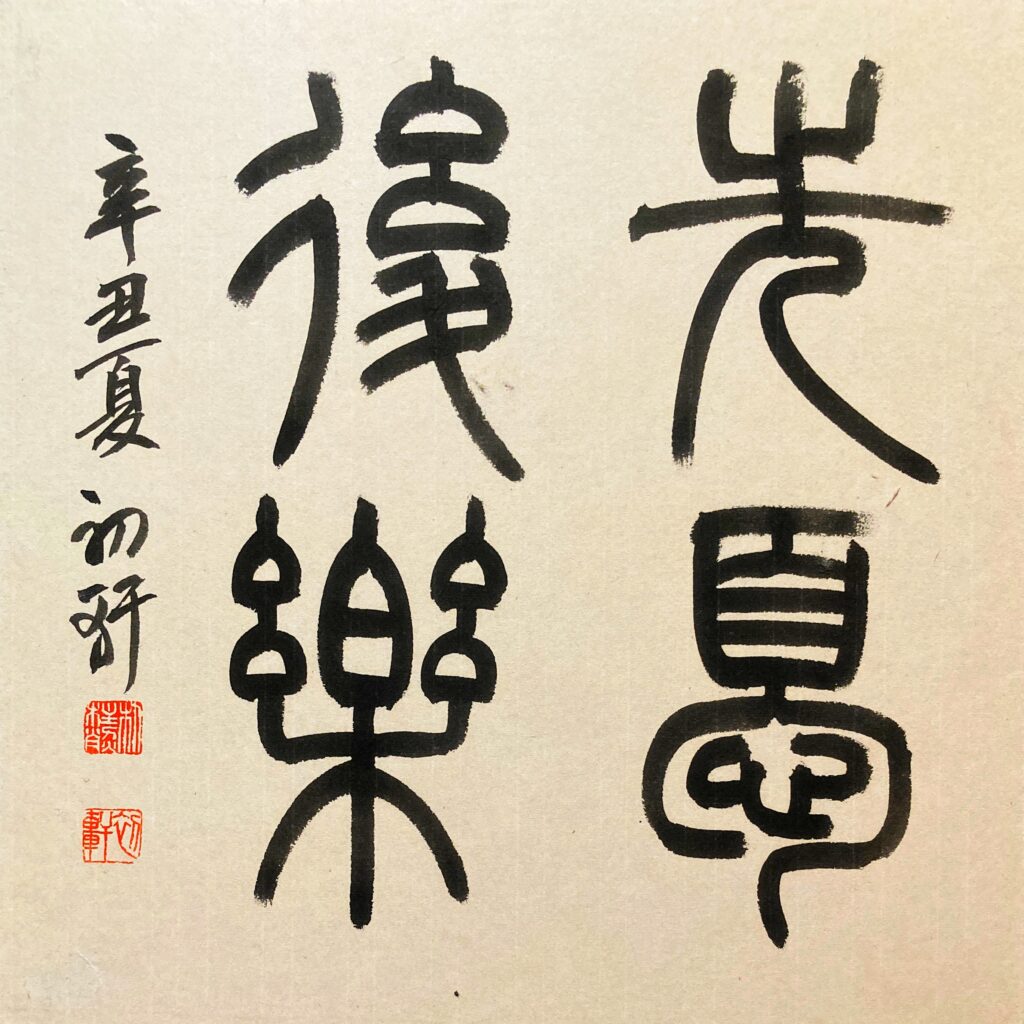 先憂
後樂
辛丑夏 初軒
初軒